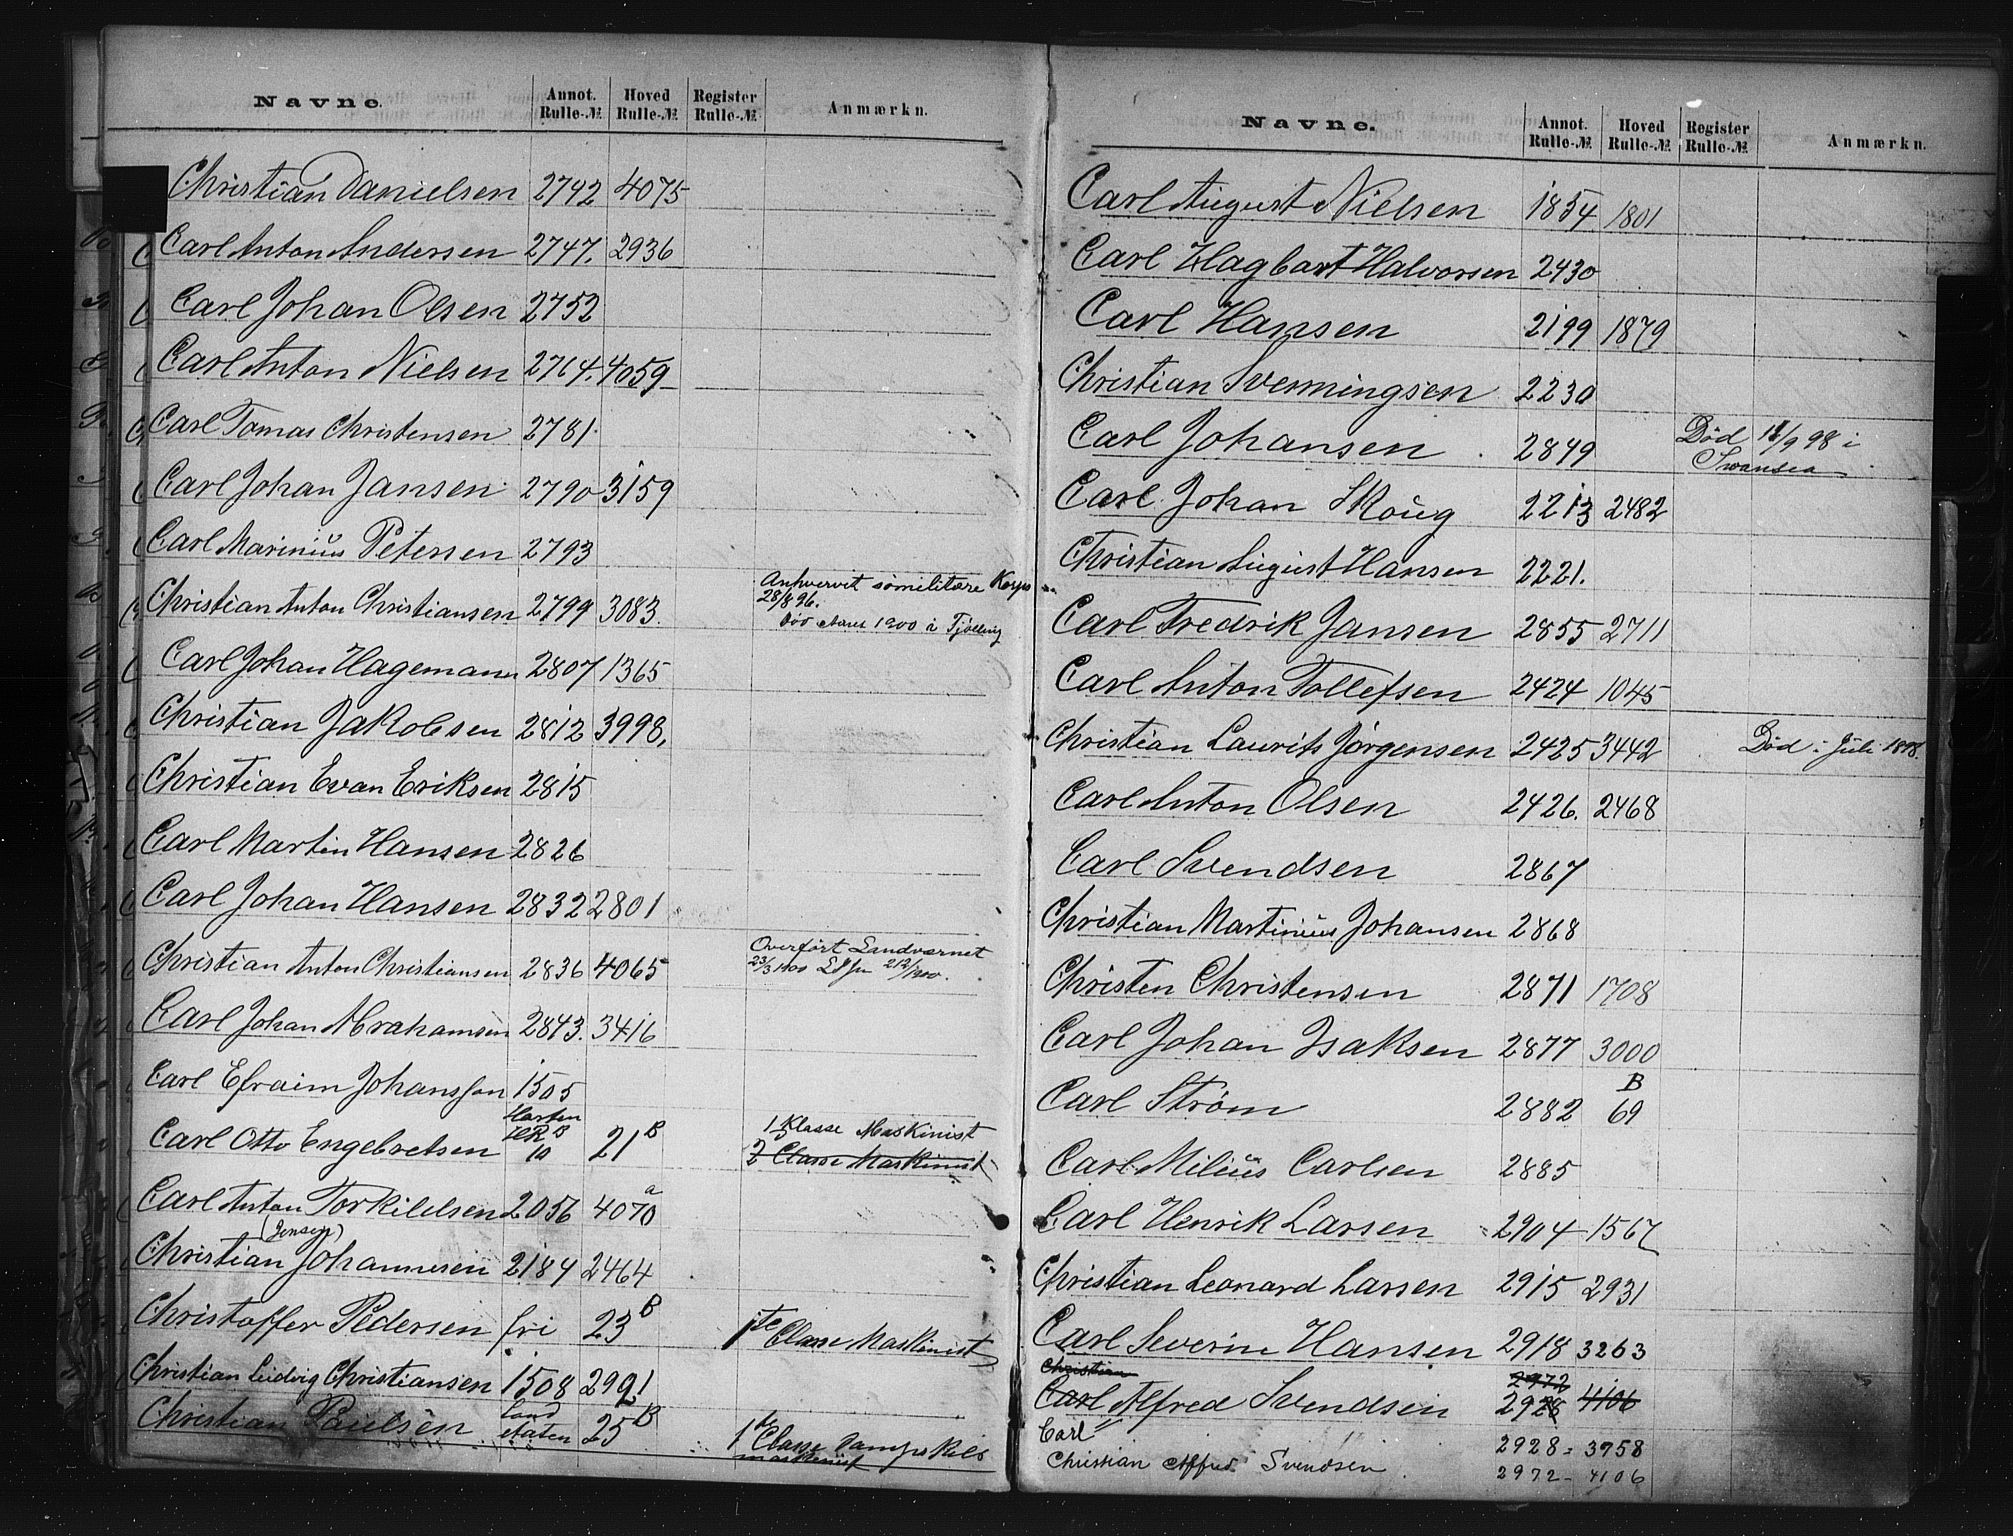 Navne.
Annot. Rulle-№
Hoved Rulle-№
Register Rulle-№
Anmærkn.
Christian Danielsen 2742 4075
Carl Anton Andersen 2747. 2936
Carl Johan Olsen 2752
Carl Anton Nielsen 2764. 4059
Carl Tomas Christensen 2781.
Carl Johan Jansen 2790 3159
Carl Marinius Petersen 2793
Christian Anton Christiansen 2799 3083. Anhvervet sømilitære Korps
28/8 96.
1900 i Tjølling
Carl Johan Hagemann 2807 1365
Christian Jakobsen 2812 3998,
Christian Evan Eriksen 2815
Carl Martin Hansen 2826
Carl Johan Hansen 2832 2801
Christian Anton Christiansen 2836 4065 Overført Landværnet
23/3 1900
Carl Johan Abrahamsen 2843. 3416
Carl Efraim Johansson 1505
Carl Otto Engebretsen 10 21 B 1 Klasse Maskinist
2 Classe Maskinist
Carl Anton Torkildsen 2056 4070 a
(Jensen)
Christian Johannesen 2184 2464
Christoffer Pedersen fri 23 B 1ste Classe Maskinist
Christian Ludvig Christiansen 1508 2991
Christian Paulsen 25 B 1ste Classe Dampskibs
maskinist
Navne.
Annot. Rulle-№
Hoved Rulle-№
Register Rulle-№
Anmærkn.
Carl August Nielsen 1854 1801
Carl Hagbart Halvorsen 2430
Carl Hansen 2199 1879
Christian Svenningsen 2230
Carl Johansen 2849 Død 18/9 98 i
Swansea
Carl Johan Skoug 2213 2482
Christian August Hansen 2221.
Carl Fredrik Jansen 2855 2711
Carl Anton Tollefsen 2424 1045
Christian Laurits Jørgensen 2425 3442 Død i Juli 1898.
Carl Anton Olsen 2426. 2468
Carl Svendsen 2867
Christian Martinius Johansen 2868
Christen Christensen 2871 1708
Carl Johan Isaksen 2877 3000
Carl Strøm 2882 B 69
Carl Milius Carlsen 2885
Carl Henrik Larsen 2904 1567
Christian Leonard Larsen 2915 2931
Carl Severin Hansen 2918 3263
Christian 2972
Carl Alfred Svendsen 2928 4106
Carl " 2928 - 3758
Christian Alfred Svendsen 2972 - 4106